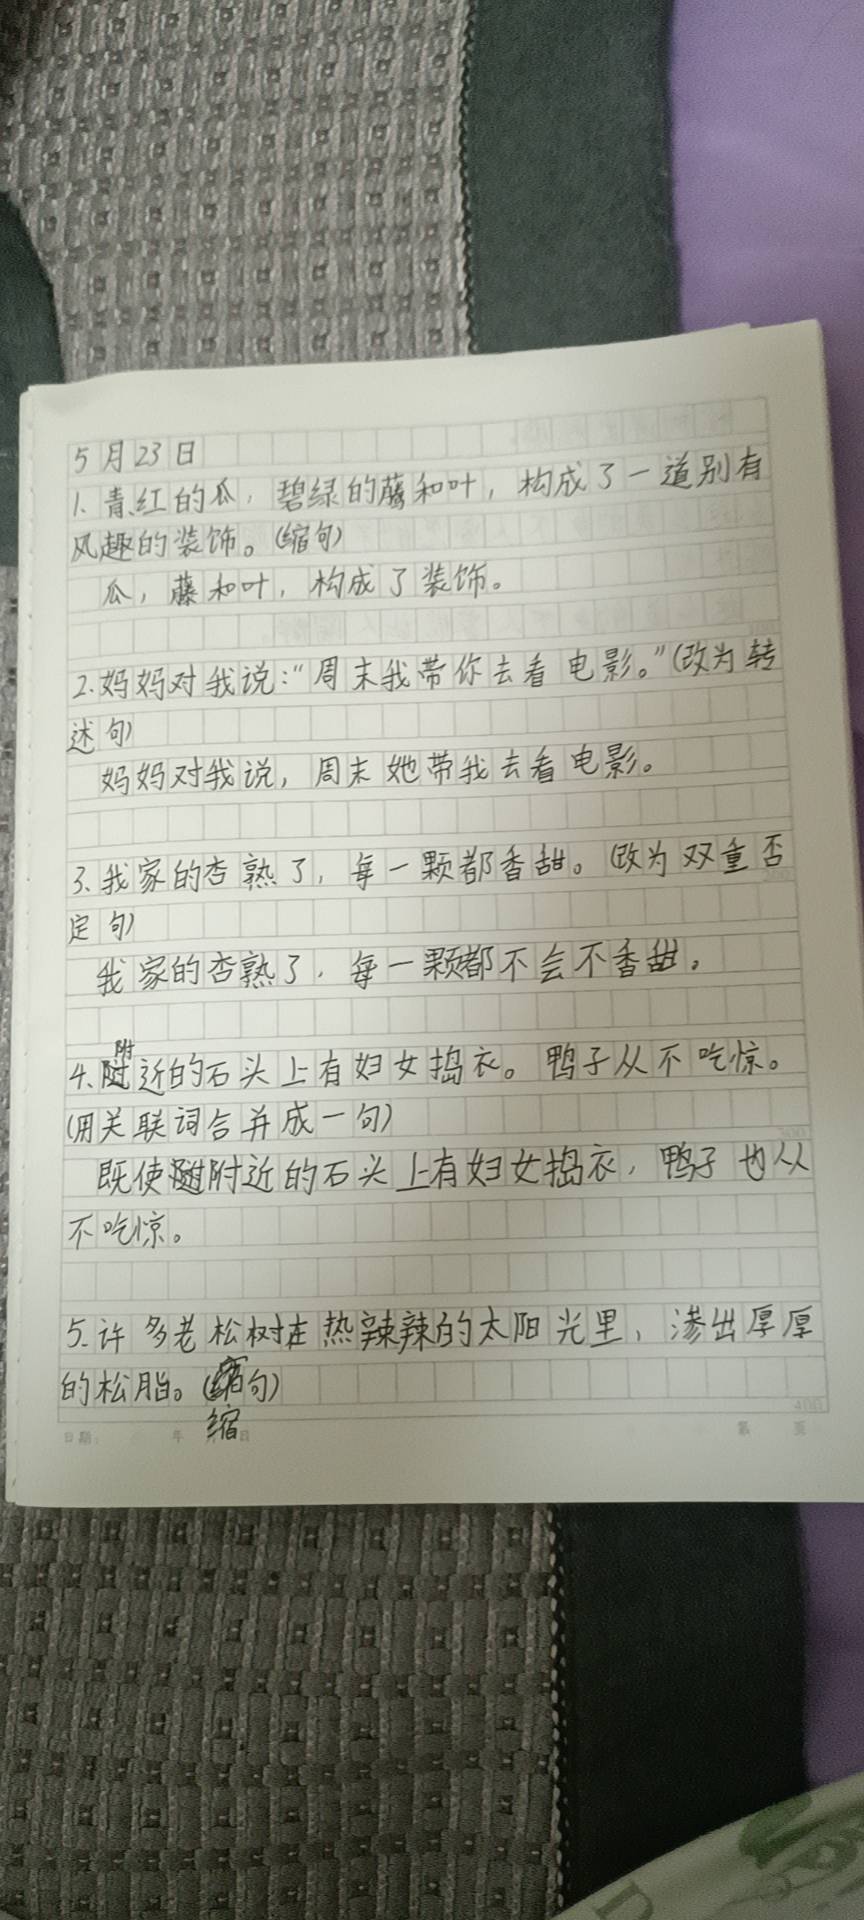 5月23日
1.青、红的瓜,碧绿的藤和叶,构成了一道别有
风趣的装饰。(缩句)
瓜,藤和叶,构成了装饰。
2.妈妈对我说:“周末我带你去看电影。”(改为转
述句)
妈妈对我说,周末她带我去看电影。
3.我家的杏熟了,每一颗都香甜。(改为双重否
定句)
我家的杏熟了,每一颗都不会不香甜。
附
4.近的石头上有妇女捣衣。鸭子从不吃惊。
(用关联词合并成一句)
既使附近的石头上有妇女捣衣,鸭子也从
不吃惊。
5.许多老松树在热辣辣的太阳光里,渗出厚厚
的松脂。(句)
缩
日期: 年 月 日 第 页
400